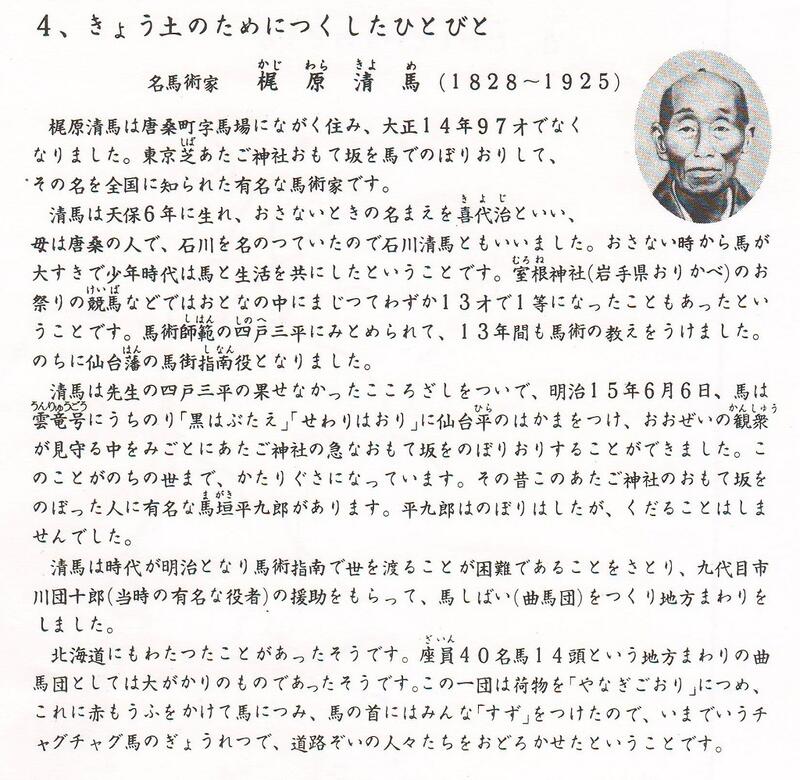 4、きょう土のためにつくしたひとびと
名馬術家　梶原清馬(1828〜1925)
かじ わら きよ め
梶原清馬は唐桑町字馬場にながく住み、大正14年97才でなく
なりました。東京芝あたご神社おもて坂を馬でのぼりおりして、
しば
その名を全国に知られた有名な馬術家です。
清馬は天保6年に生れ、おさないときの名まえを喜代治といい、
きよじ
母は唐桑の人で、石川を名のつていたので石川清馬ともいいました。おさない時から馬が
大すきで少年時代は馬と生活を共にしたということです。室根神社(岩手県おりかべ)のお
むろね
祭りの競馬などではおとなの中にまじつてわずか13才で1等になったこともあったとい
けいば
うことです。馬術師範の四戸三平にみとめられて、13年間も馬術の教えをうけました。
しはん しのへ
のちに仙台藩の馬街指南役となりました。
はん しなん
清馬は先生の四戸三平の果せなかったこころざしをついで、明治15年6月6日、馬は
雲竜号にうちのり「黒はぶたえ」「せわりはおり」に仙台平のはかまをつけ、おおぜいの観衆
うんりゅうごう ひら かんしゅう
が見守る中をみごとにあたご神社の急なおもて坂をのぼりおりすることができました。こ
のことがのちの世まで、かたりぐさになっています。その昔このあたご神社のおもて坂を
のぼった人に有名な馬垣平九郎があります。平九郎はのぼりはしたが、くだることはしま
まがき
せんでした。
清馬は時代が明治となり馬術指南で世を渡ることが困難であることをさとり、九代目市
川団十郎(当時の有名な役者)の援助をもらって、馬しばい(曲馬団)をつくり地方まわりを
しました。
北海道にもわたつたことがあったそうです。座員40名馬14頭という地方まわりの曲
ざいん
馬団としては大がかりのものであったそうです。この一団は荷物を「やなぎごおり」につめ、
これに赤もうふをかけて馬につみ、馬の首にはみんな「すず」をつけたので、いまでいうチ
ャグチャグ馬のぎょうれつで、道路ぞいの人々たちをおどろかせたということです。